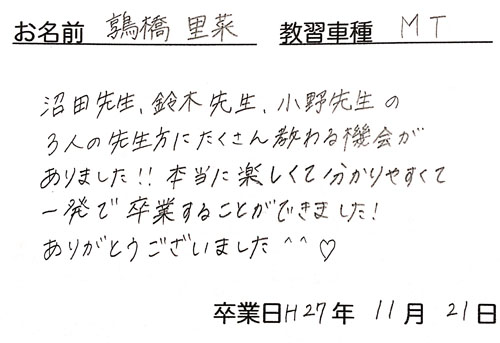 お名前 鶉橋 里菜 教習車種 MT
沼田先生、鈴木先生、小野先生の
3人の先生方にたくさん教わる機会が
ありました!!本当に楽しくて分かりやすくて
一発で卒業することができました!
ありがとうございました^^♡
卒業日H27年 11月 21日